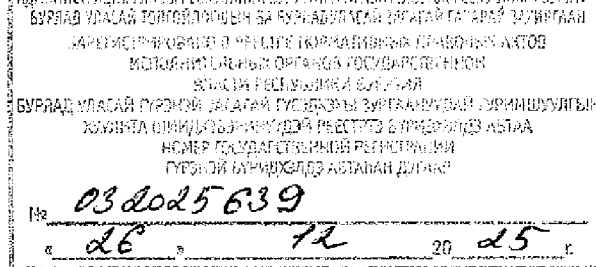 БУРЯАД УЛАСАЙ ТОЛГОЙЛОГШЫН БА БУРЯАД УЛАСАЙ ЗАСАГАЙ ГАЗАРАЙ ЗАХИРГААН
ЗАРЕГИСТРИРОВАНО В РЕЕСТРЕ НОРМАТИВНЫХ ПРАВОВЫХ АКТОВ
ИСПОЛНИТЕЛЬНЫХ ОРГАНОВ ГОСУДАРСТВЕННОЙ
ВЛАСТИ РЕСПУБЛИКИ БУРЯТИЯ
БУРЯАД УЛАСАЙ ГҮРЭНЭЙ ЗАСАГАЙ
РЕЕСТРТЭ БҮРИДХЭЛДЭ АБТАА
НОМЕР ГОСУДАРСТВЕННОЙ РЕГИСТРАЦИИ
ГҮРЭНЭЙ БҮРИДХЭЛДЭ АБТАҺАН ДУГААР
№ 032025639
« 26 » 12 20 25 г.